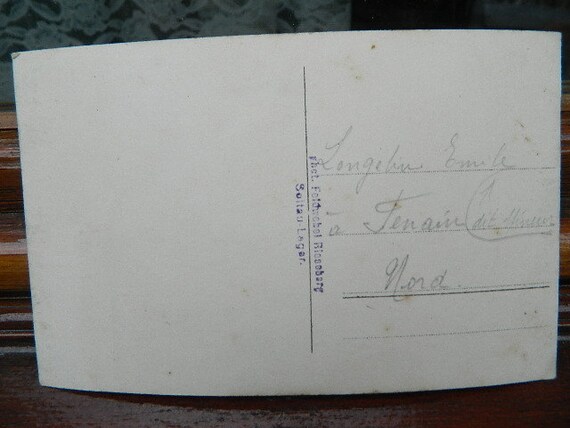 Phot. Feldwebel Rieseberg
Soltau-Lager.
Longélin Emile
à Fenain (dit
Nord.